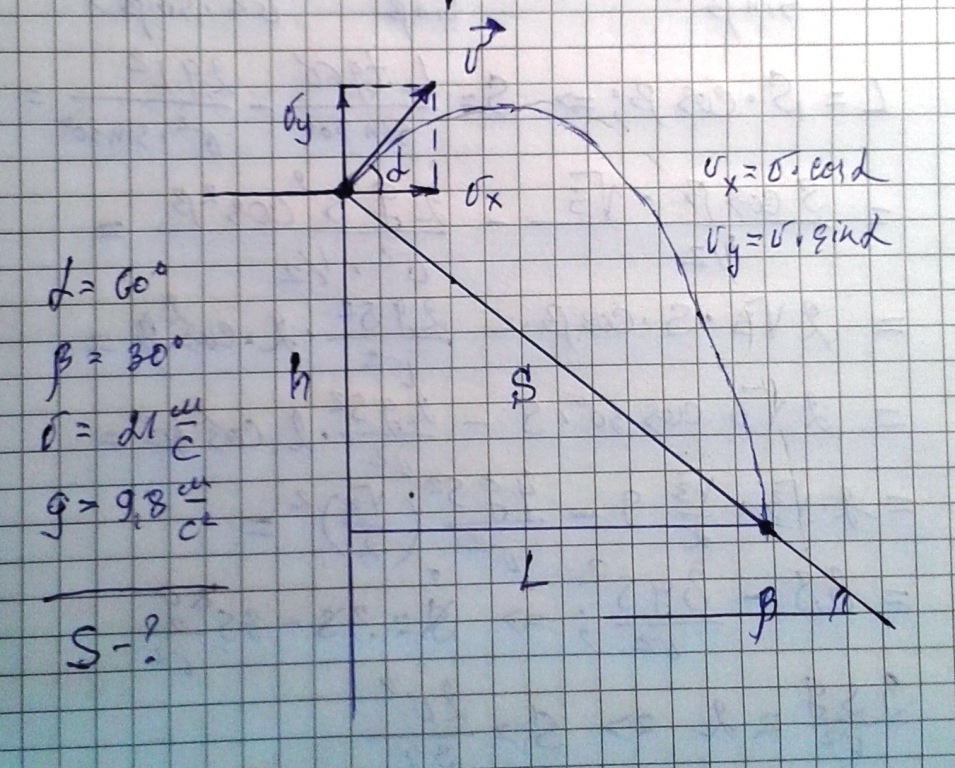 v⃗
vy
α
vx
vx = v · cosα
vy = v · sinα
α = 60°
β = 30°
v = 21 м/с
g = 9,8 м/с²
S - ?
h
S
L
β